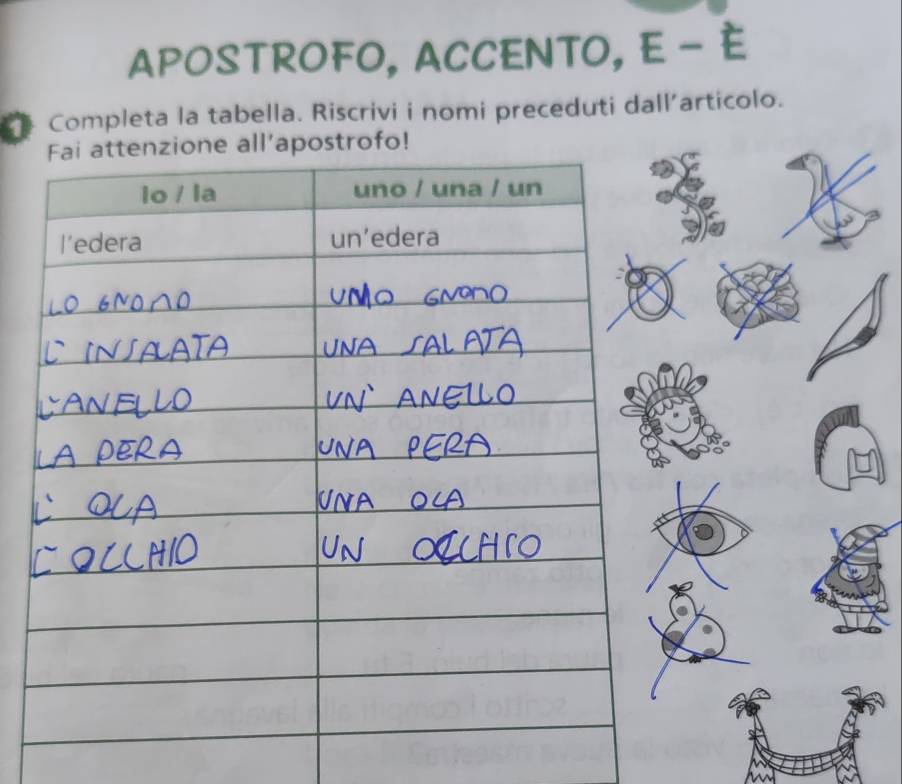 APOSTROFO, ACCENTO, E - È
1 Completa la tabella. Riscrivi i nomi preceduti dall'articolo.
Fai attenzione all'apostrofo!
lo / la uno / una / un
l'edera un'edera
LO GNOMO UMO GNOMO
L' INSALATA UNA SALATA
L'ANELLO UN' ANELLO
LA PERA UNA PERA
L' OCA UNA OCA
L' OCCHIO UN OCCHIO